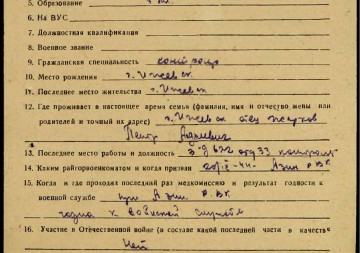 5. Образование
6. На ВУС
7. Должностная квалификация
8. Военное звание
9. Гражданская специальность контролер
10. Место рождения г. Ижевск
11. Последнее место жительства г. Ижевск
12. Где проживает в настоящее время семья (фамилия, имя и отчество жены или
родителей и точный их адрес) г. Ижевск отец
Петр
13. Последнее место работы и должность 3-д 622 отд 33 контролер
14. Каким райгорвоенкоматом и когда призван Азин РВК
15. Когда и где проходил последний раз медкомиссию и результат годности к
военной службе при Азин РВК
годен к воинской службе
16. Участие в Отечественной войне (в составе какой последней части в качестве
Нет